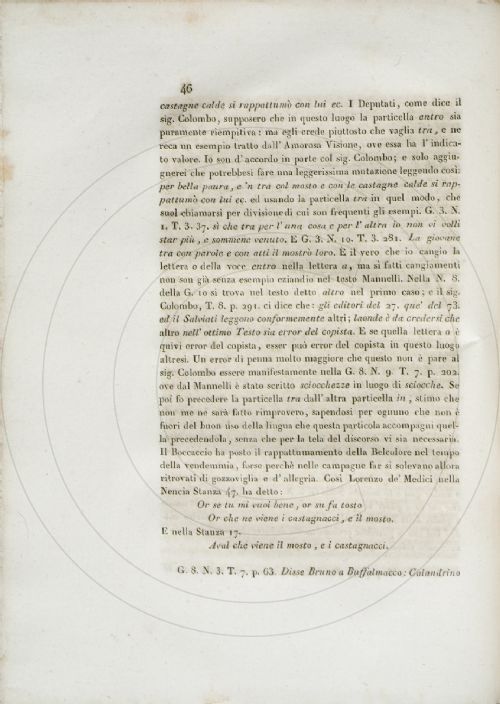 46
castagne calde si rappattumò con lui ec. I Deputati, come dice il
sig. Colombo, supposero che in questo luogo la particella entro sia
puramente riempitiva: ma egli crede piuttosto che vaglia tra, e ne
reca un esempio tratto dall' Amorosa Visione, ove essa ha l' indica-
to valore. Io son d' accordo in parte col sig. Colombo; e solo aggiu-
gnerei che potrebbesi fare una leggerissima mutazione leggendo così:
per bella paura, e 'n tra col mosto e con le castagne calde si rap-
pattumò con lui ec. ed usando la particella tra in quel modo, che
suol chiamarsi per divisione di cui son frequenti gli esempi. G. 3. N.
1. T. 3. 37. sì che tra per l' una cosa e per l' altra io non vi volli
star più, e sommene venuto. E G. 3. N. 10. T. 3. 281. La giovane
tra con parole e con atti il mostrò loro. E il vero che io cangio la
lettera o della voce entro nella lettera a, ma sì fatti cangiamenti
non son già senza esempio eziandio nel testo Mannelli. Nella N. 8.
della G. 10 si trova nel testo detto altro nel primo caso; e il sig.
Colombo, T. 8. p. 291. ci dice che: gli editori del 27. que' del 73.
ed il Salviati leggono conformemente altri; laonde è da credersi che
altro nell' ottimo Testo sia error del copista. E se quella lettera o è
quivi error del copista, esser può error del copista in questo luogo
altresì. Un error di penna molto maggiore che questo non è pare al
sig. Colombo essere manifestamente nella G. 8. N. 9. T. 7. p. 202.
ove dal Mannelli è stato scritto sciocchezze in luogo di sciocche. Se
poi fo precedere la particella tra dall' altra particella in, stimo che
non me ne sarà fatto rimprovero, sapendosi per ognuno che non è
fuori del buon uso della lingua che questa particola accompagni quel-
la precedendola, senza che per la tela del discorso vi sia necessaria.
Il Boccaccio ha posto il rappattumamento della Belcolore nel tempo
della vendemmia, forse perchè nelle campagne far si solevano allora
ritrovati di gozzoviglia e d' allegria. Così Lorenzo de' Medici nella
Nencia Stanza 47. ha detto:
Or se tu mi vuoi bene, or su fa tosto
Or che ne viene i castagnacci, e il mosto.
E nella Stanza 17.
Aval che viene il mosto, e i castagnacci.
G. 8. N. 3. T. 7. p. 63. Disse Bruno a Buffalmacco: Calandrino